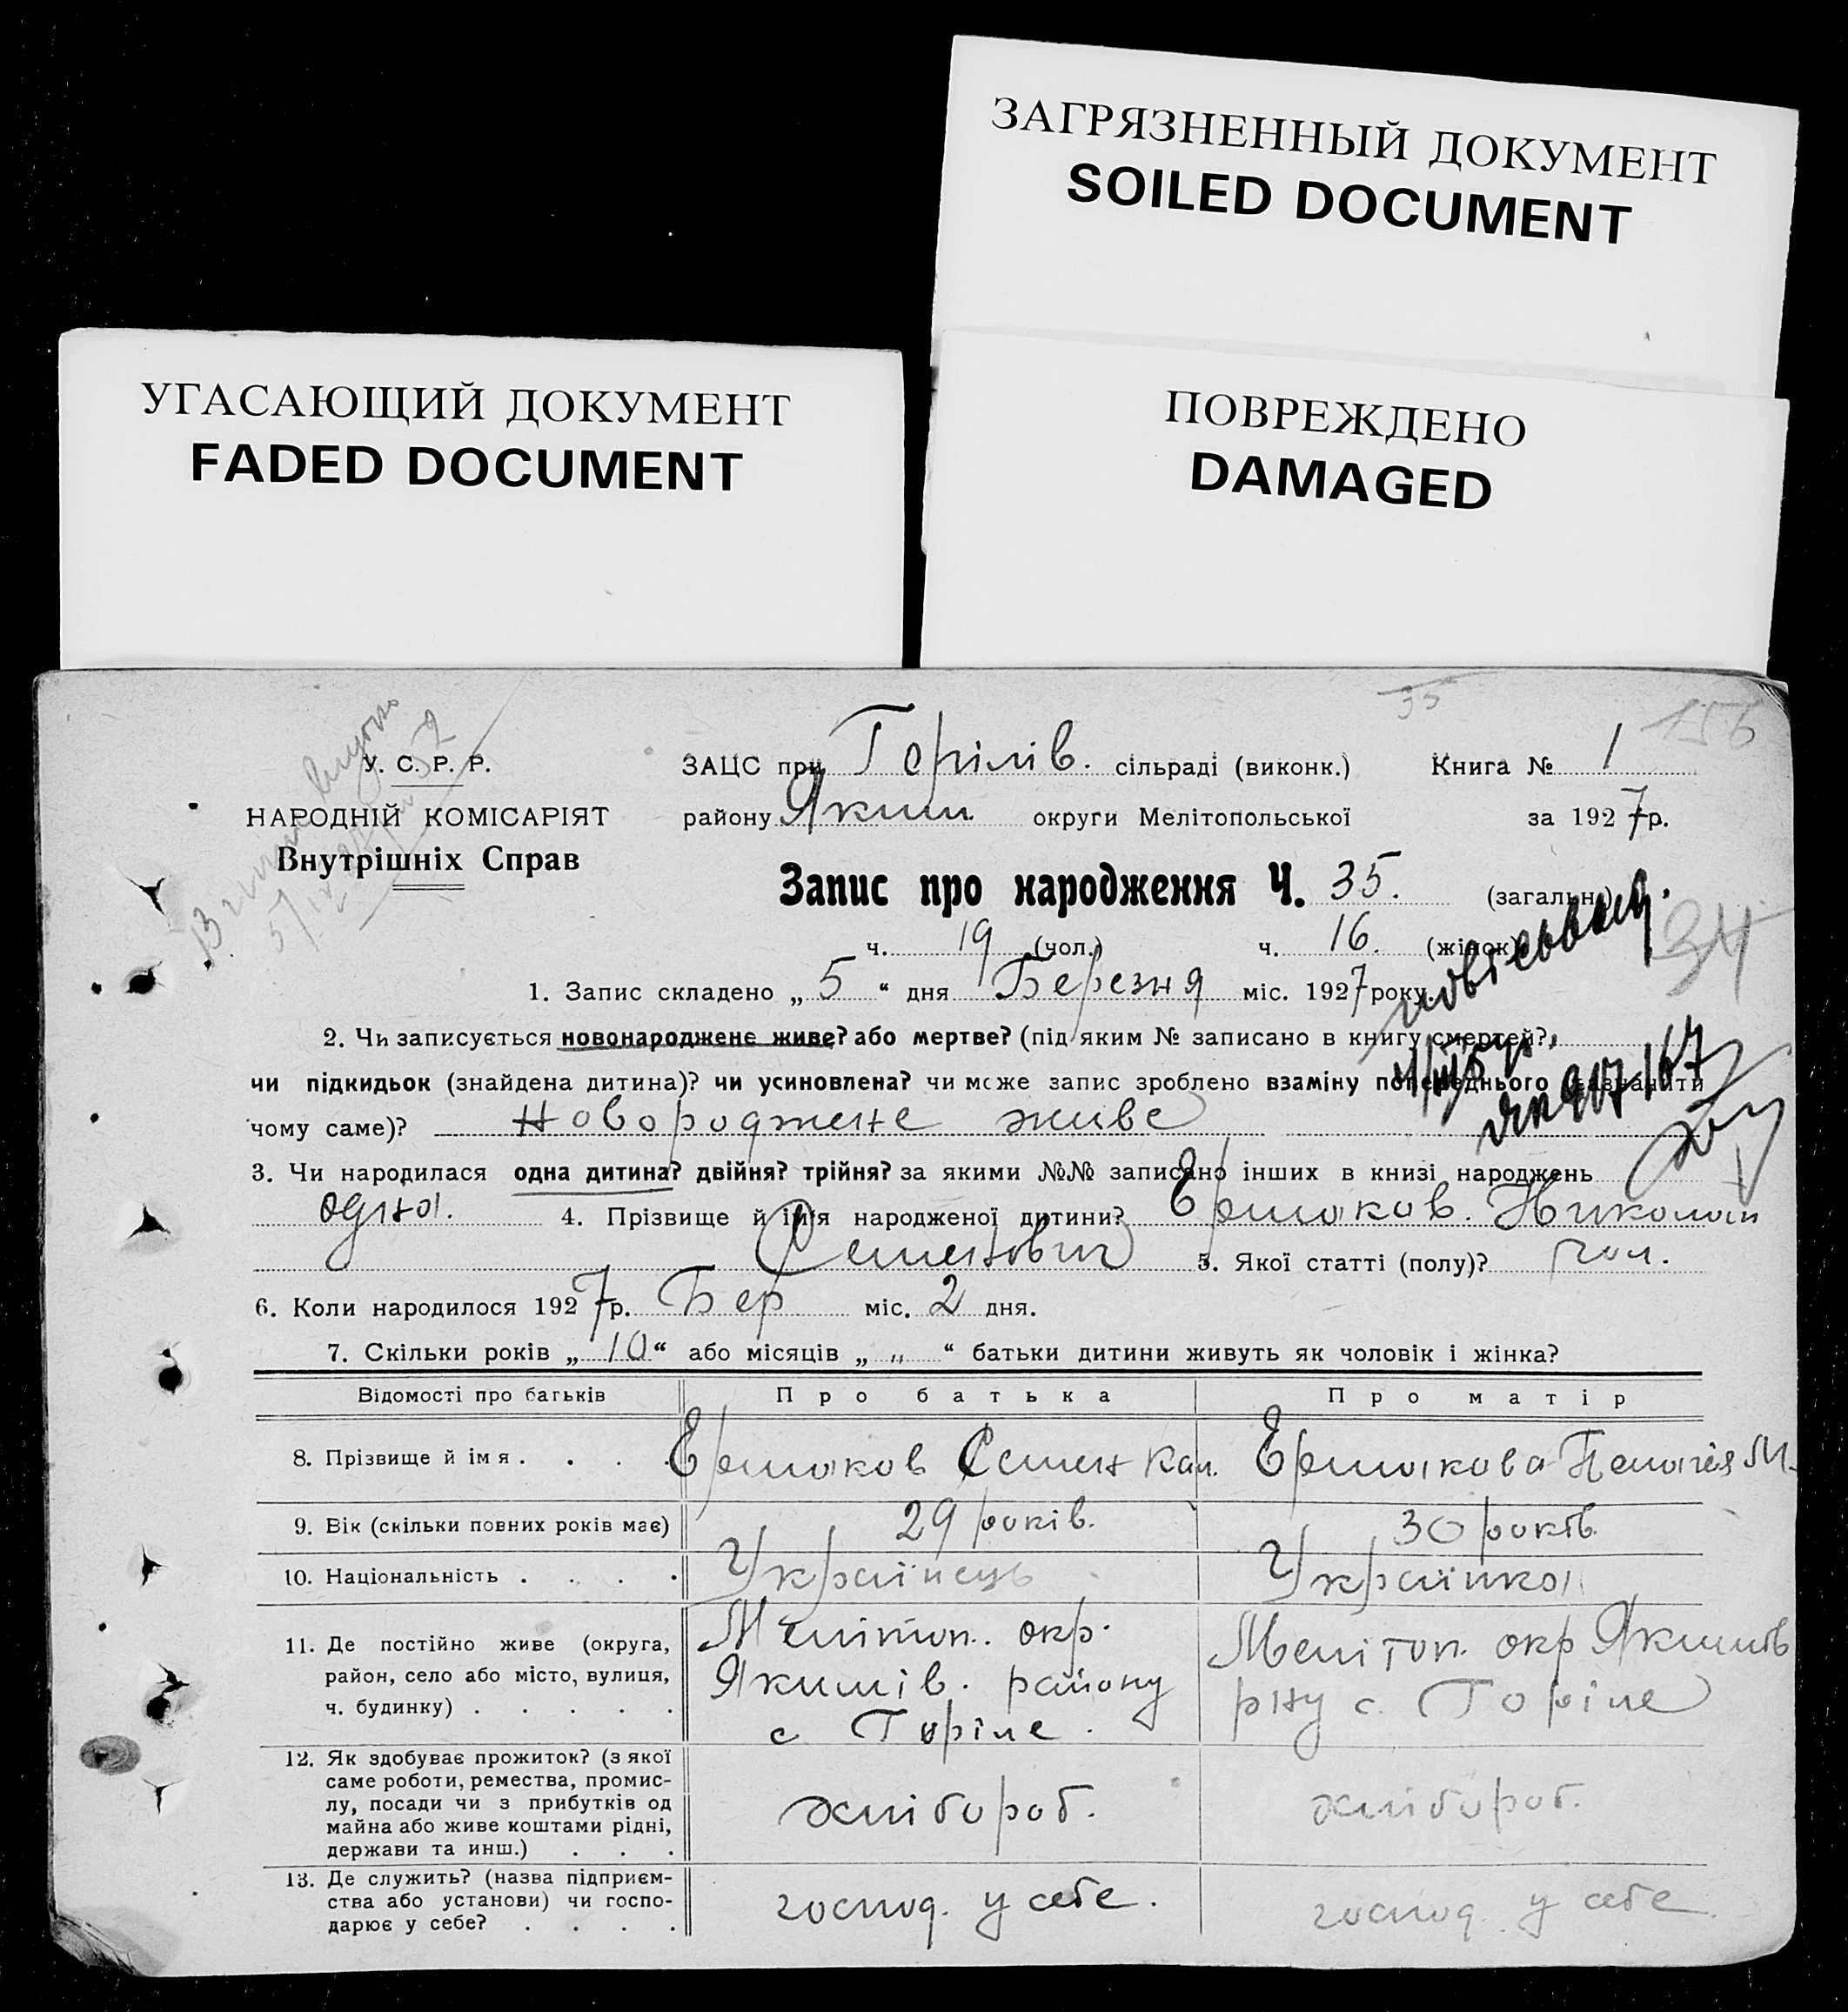 ЗАГРЯЗНЕННЫЙ ДОКУМЕНТ
SOILED DOCUMENT
УГАСАЮЩИЙ ДОКУМЕНТ
FADED DOCUMENT
ПОВРЕЖДЕНО
DAMAGED
35
156
У. С. Р. Р.
НАРОДНІЙ КОМІСАРІЯТ
Внутрішніх Справ
ЗАЦС при Горілів. сільраді (виконк.) Книга № 1
району Яким округи Мелітопольської за 1927 р.
Запис про народження Ч. 35. (загальн.)
34
ч. 19 (чол.) ч. 16. (жінок)
1. Запис складено „ 5 “ дня Березня міс. 1927 року.
2. Чи записується новонароджене живе? або мертве? (під яким № записано в книгу смертей?,
чи підкидьок (знайдена дитина)? чи усиновлена? чи може запис зроблено взаміну попереднього зазначити
чому саме)? новороджене живе
3. Чи народилася одна дитина? двійня? трійня? за якими №№ записано інших в книзі народжень
одна. 4. Прізвище й ім'я народженої дитини? Ермаков. Николай
Семенович 5. Якої статті (полу)? чол.
6. Коли народилося 1927 р. Бер міс. 2 дня.
7. Скільки років „ 10 “ або місяців „ „ “ батьки дитини живуть як чоловік і жінка?
Відомості про батьків Про батька Про матір
8. Прізвище й імя . . . . Ермаков Семен Кал. Ермакова Пелагея М.
9. Вік (скільки повних років має) 29 років. 30 років.
10. Національність . . . . Українець Українка
11. Де постійно живе (округа, район, село або місто, вулиця, ч. будинку) . . . . .
Мелітоп. окр. Якимів. району с Горіле.
Мелітоп. окр Якимів рну с. Горіле
12. Як здобуває прожиток? (з якої саме роботи, ремества, промислу, посади чи з прибутків од майна або живе коштами рідні, держави та инш.) . . .
хлібороб. хлібороб.
13. Де служить? (назва підприємства або установи) чи господарює у себе? . . . .
господ. у себе. господ. у себе.